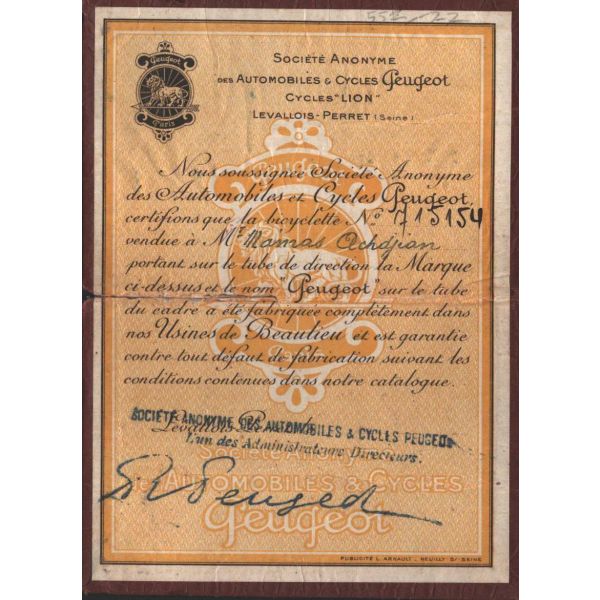 552-22
Peugeot
Paris
SOCIÉTÉ ANONYME
DES AUTOMOBILES & CYCLES Peugeot
CYCLES "LION"
LEVALLOIS-PERRET (Seine)
Peugeot
Nous soussignée Société Anonyme
des Automobiles et Cycles Peugeot,
certifions que la bicyclette No 715154
vendue à Mr Mamas Achdjian
portant sur le tube de direction la Marque
ci-dessus et le nom "Peugeot" sur le tube
du cadre a été fabriquée complètement dans
nos Usines de Beaulieu et est garantie
contre tout défaut de fabrication suivant les
conditions contenues dans notre catalogue.
Paris
Levallois-Perret
SOCIÉTÉ ANONYME DES AUTOMOBILES & CYCLES PEUGEOT
L'un des Administrateurs Directeurs.
Société Anonyme
des Automobiles & Cycles
Peugeot
Peugeot
PUBLICITÉ L. ARNAULT, NEUILLY S/-SEINE